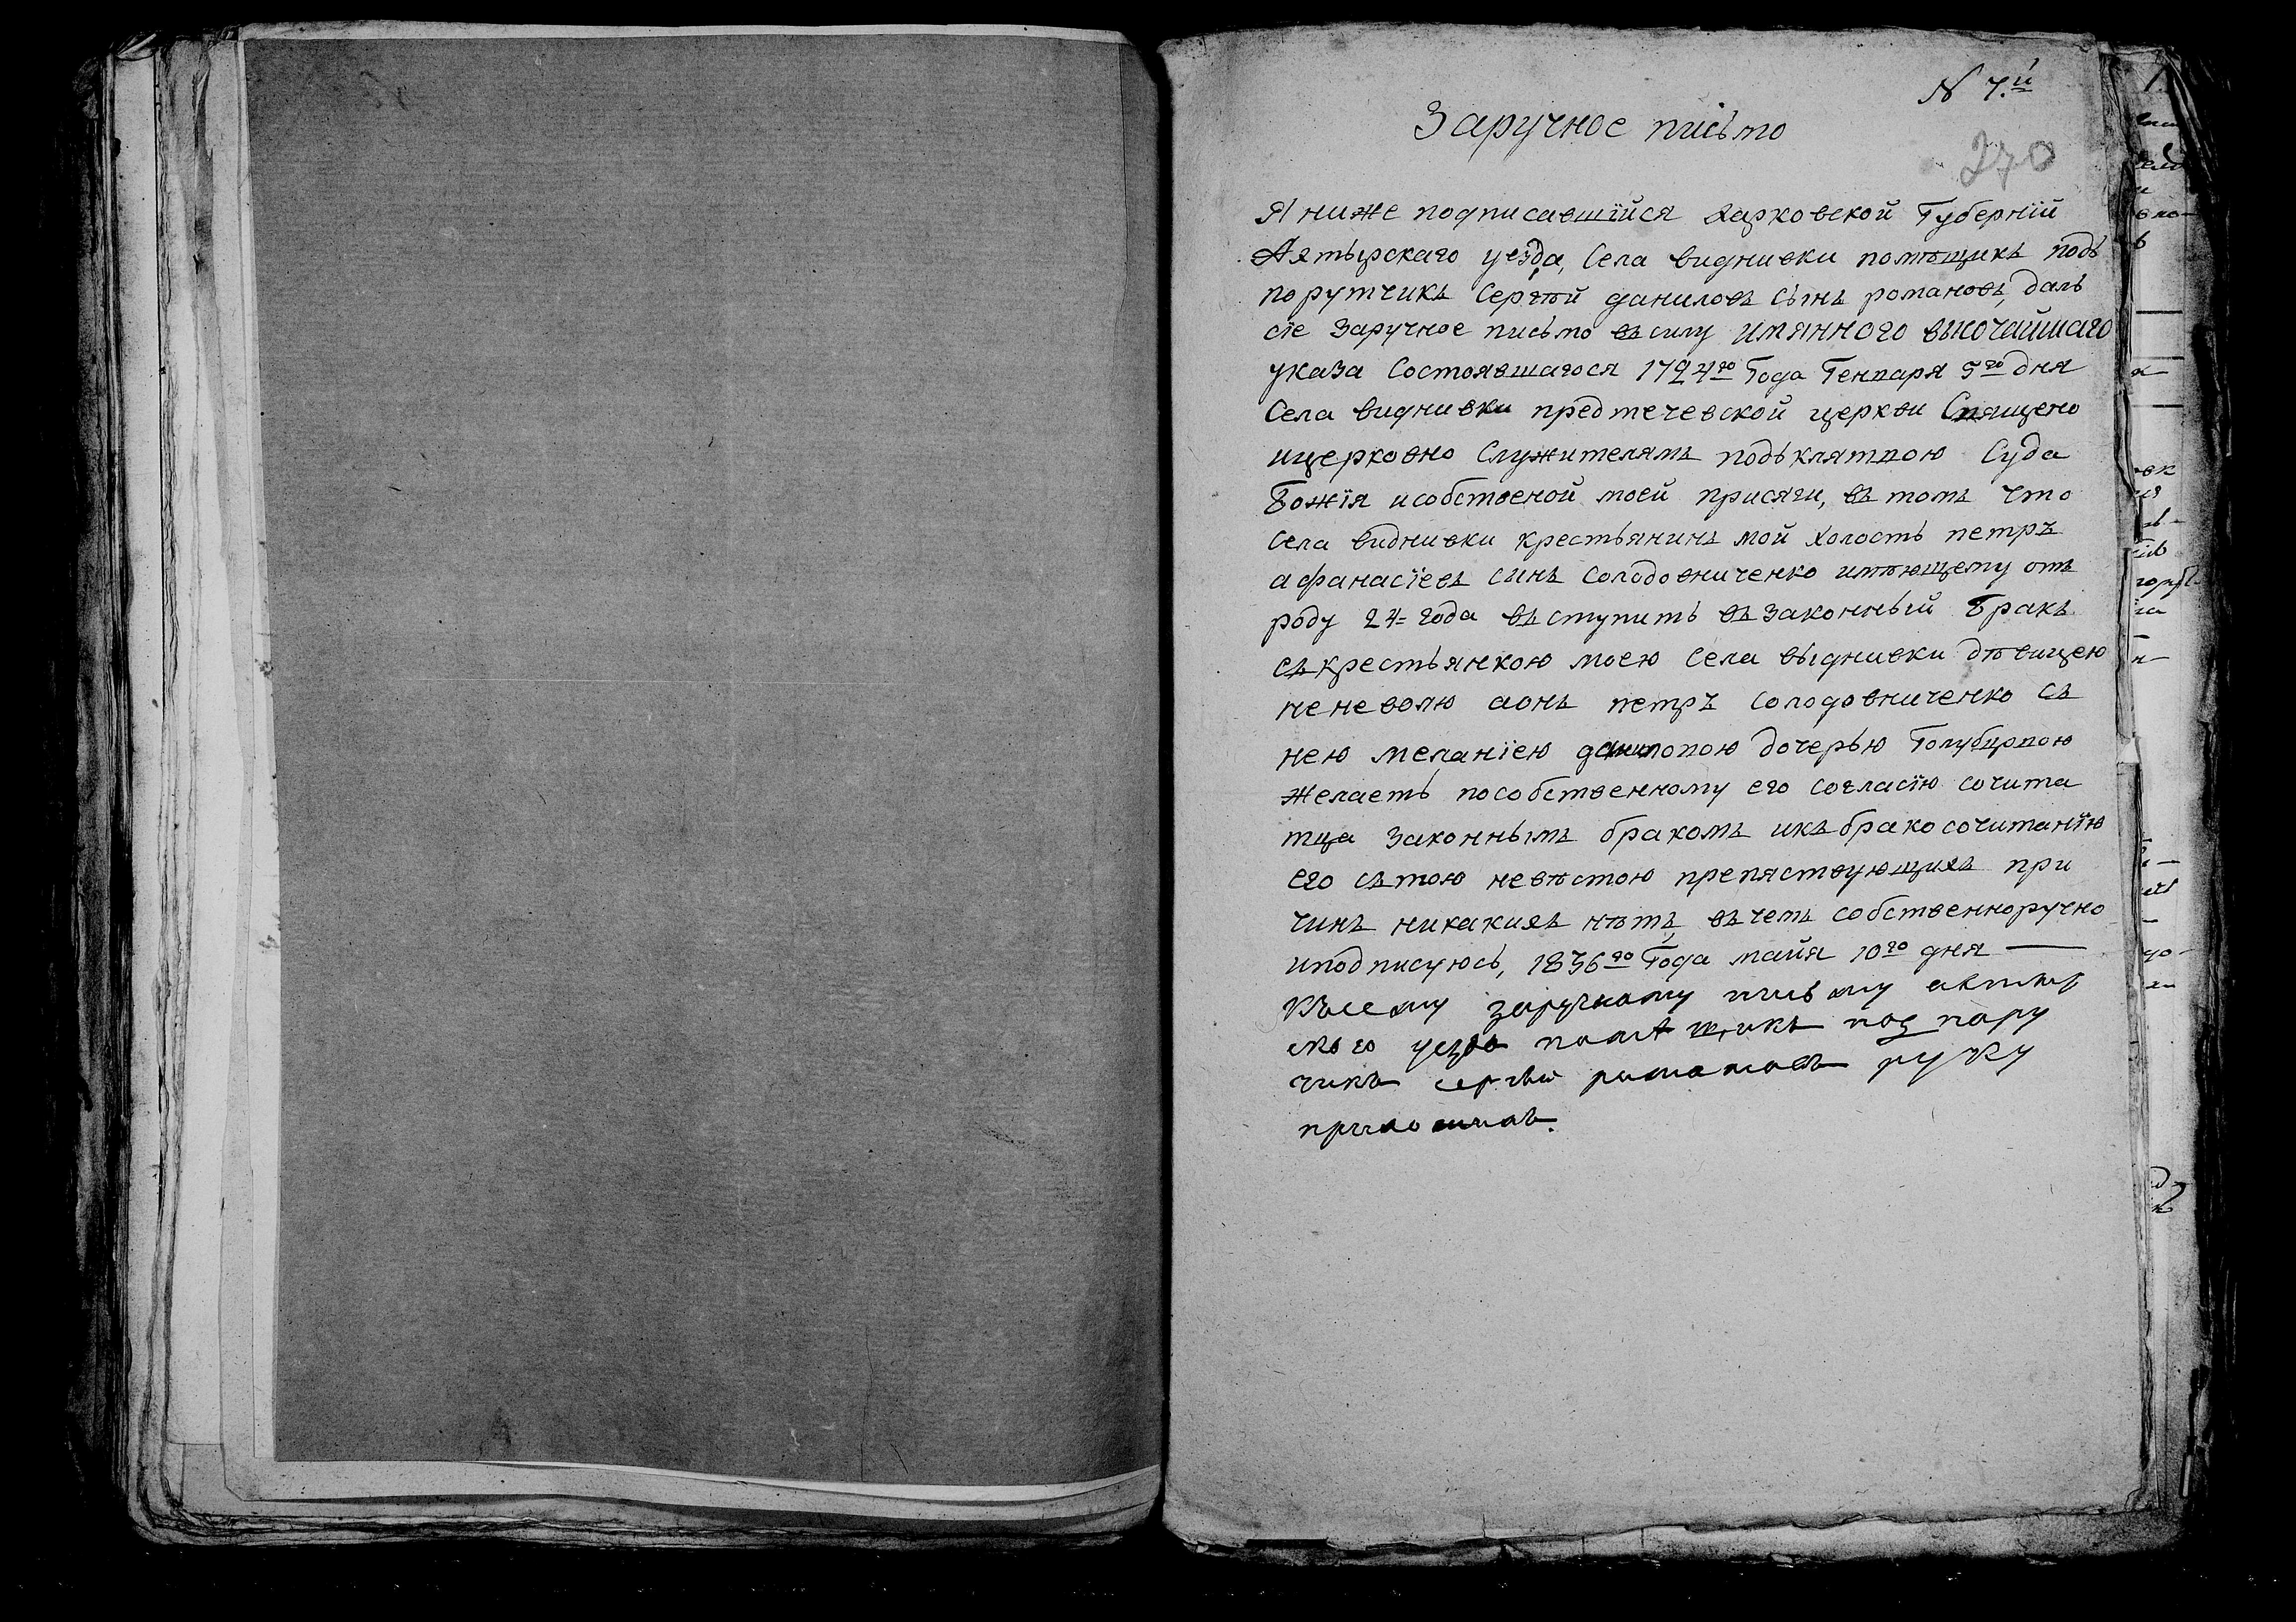 N 7.й
Заручное письмо
270
Я ниже подписавшїйся Харковской Губернїй
Ахтырскаго уезда, Села видниβки помѣщикъ подъ
порутчикъ Сергѣй даниловъ сынъ романовъ, далъ
сїе Заручное письмо въ силу имянного высочайшаго
указа Состоявшагося 1724го Года Генваря 5го дня
Села видниβки предтечевской церкви Священо
ицерковно Служителямъ подъклятвою Суда
Божїя исобственой моей присяги, въ томъ что
Села видниβки крестьянинъ мой холостъ петръ
афанасїевъ сынъ Солодовниченко имѣющему отъ
роду 24= года въступить въ законный Бракъ
съкрестьянкою моею Села выдниβки дѣвицею
неневолю аонъ петръ Солодовниченко съ
нею меланїею даниловою дочерью Голубцовою
желаетъ пособственному его согласїю сочита
тца Законнымъ бракомъ икъ бракосочитанїю
его сътою невѣстою препяствующихъ при
чинъ никакихъ нѣтъ, въ чемъ собственноручно
иподписуюсь, 1836го Года майя 10го дня —
Ксему заручному письму ахтыр
скаго уезда помѣщикъ под пору
чикъ сергѣй романовъ руку
приложилъ.